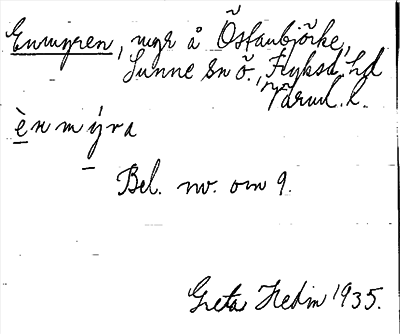 Enmyren, myr å Östanbjörke,
Sunne sn ö., Fryksd. hd
Värml. l.
ènmýra
Bel. nv. om 9.
Greta Hedin 1935.